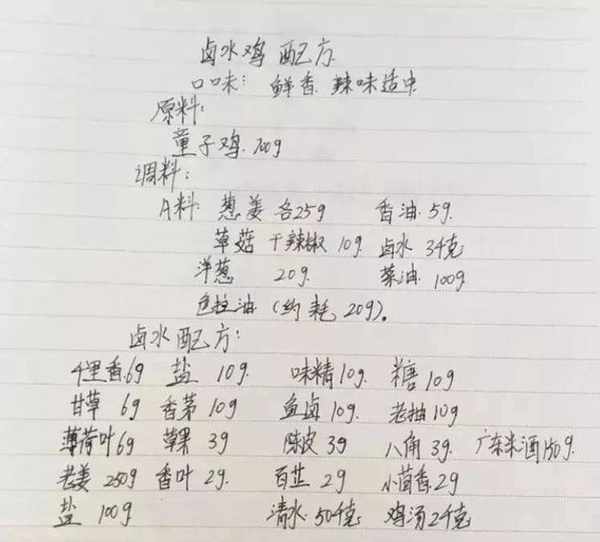 卤水鸡 配方
口味: 鲜香 辣味适中
原料:
童子鸡.700g
调料:
A料 葱姜各25g 香油.5g.
草菇 干辣椒 10g 卤水 3千克
洋葱 20g. 菜油 100g
色拉油 (约耗 20g)。
卤水配方:
千里香.6g 盐 10g. 味精10g. 糖10g
甘草 6g 香茅 10g 鱼卤 10g. 老抽10g
薄荷叶6g 草果 3g 陈皮 3g 八角 3g. 广东米酒150g.
老姜 250g 香叶 2g. 白芷 2g 小茴香.2g
盐 100g 清水.50千克 鸡汤2千克